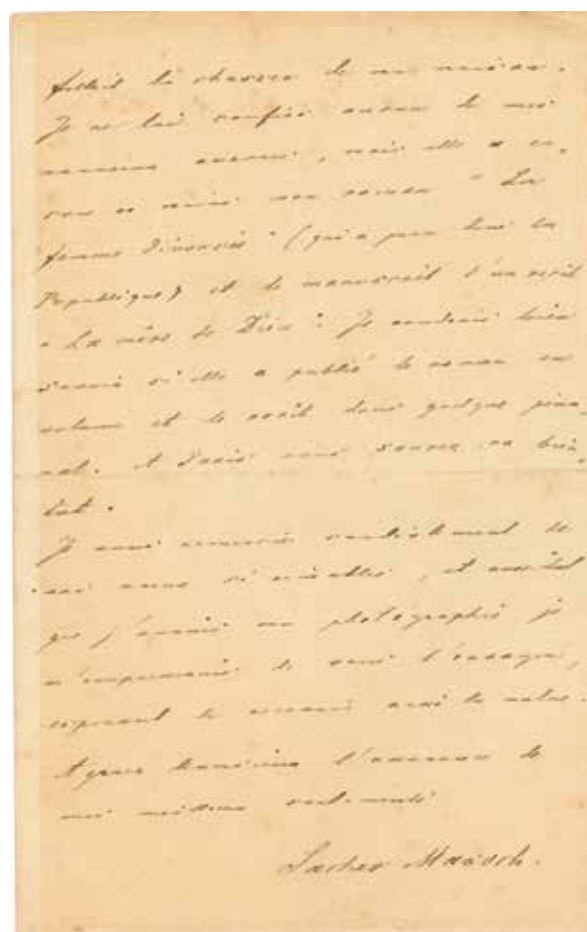 Je ne lui confié aucun de mes
nouveaux , mais elle a en-
mon roman " La
femme divorcée " (qui a paru dans la
République) et le manuscrit d'un récit
" La mère de Dieu " . Je voudrais bien
savoir si elle a publié le roman en
volume et le récit dans quelque jour-
nal. A Paris vous saurez ça bien-
tôt.
Je vous remercie cordialement de
vos si aimables , et aussitôt
que j'aurai un photographie je
m'empresserai de vous l'envoyer,
espérant de recevoir aussi la votre.
Agréez Monsieur l'assurance de
mes meilleurs sentiments
Sacher Masoch.